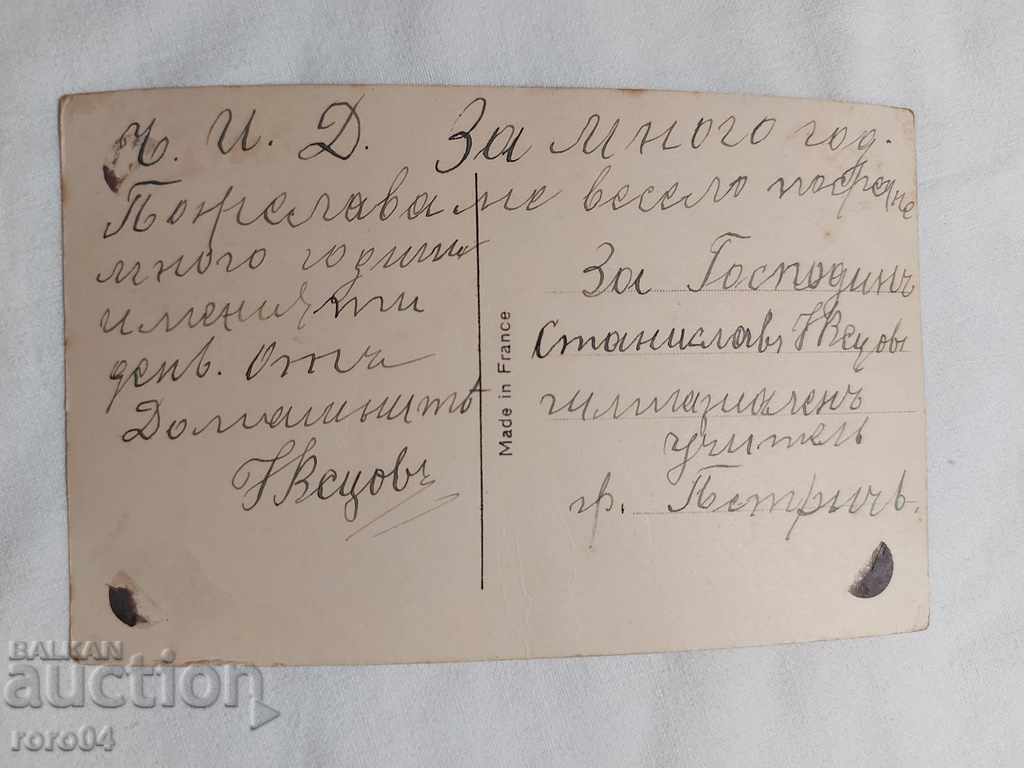 Ч. И. Д. За много год.
Пожелаваме весело
много години
имения ти
день. Отъ
Домашнитѣ
Made in France
За Господинъ
Станиславъ
гимназиаленъ
учитель
гр. Петричъ.
BALKAN
auction
roro04